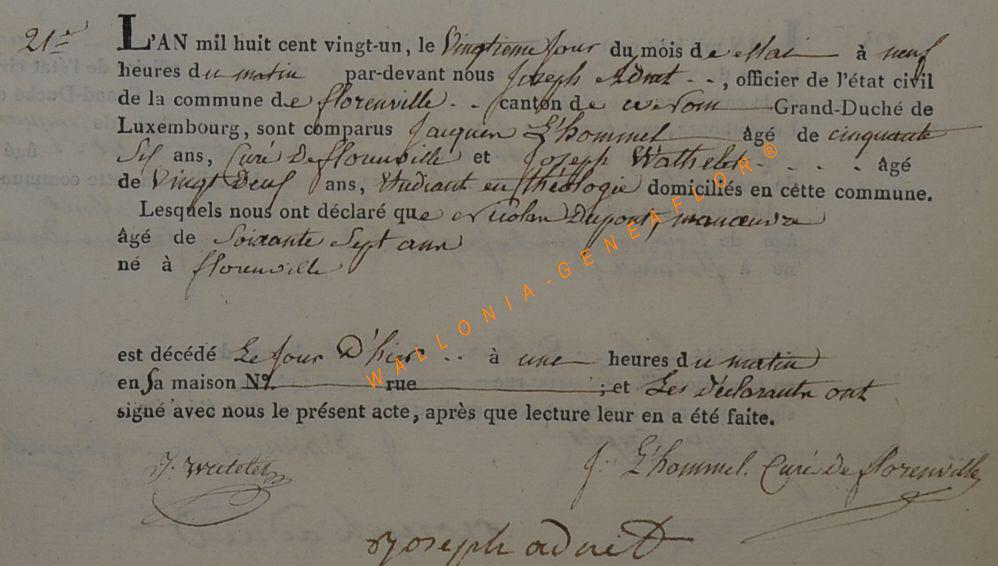 21e
L'AN mil huit cent vingt-un, le Vingtieme Jour du mois de Mai à neuf
heures du matin par-devant nous Joseph Adnet, officier de l'état civil
de la commune de florenville canton de Grand-Duché de
Luxembourg, sont comparus Jacques L'hommel âgé de cinquante
Six ans, Curé De florenville et Joseph Wathelet âgé
de Vingt Deux ans, étudiant en théologie domiciliés en cette commune.
Lesquels nous ont déclaré que Nicolas Dupont, manœuvre
âgé de Soixante Sept ans
né à florenville
est décédé Le Jour D'hier à une heures du matin
en sa maison No. rue ; et Les déclarants ont
signé avec nous le présent acte, après que lecture leur en a été faite.
J. Watelet
J. L'hommel. Curé De florenville
Joseph adnet
WALLONIA-GENEAFLOR®